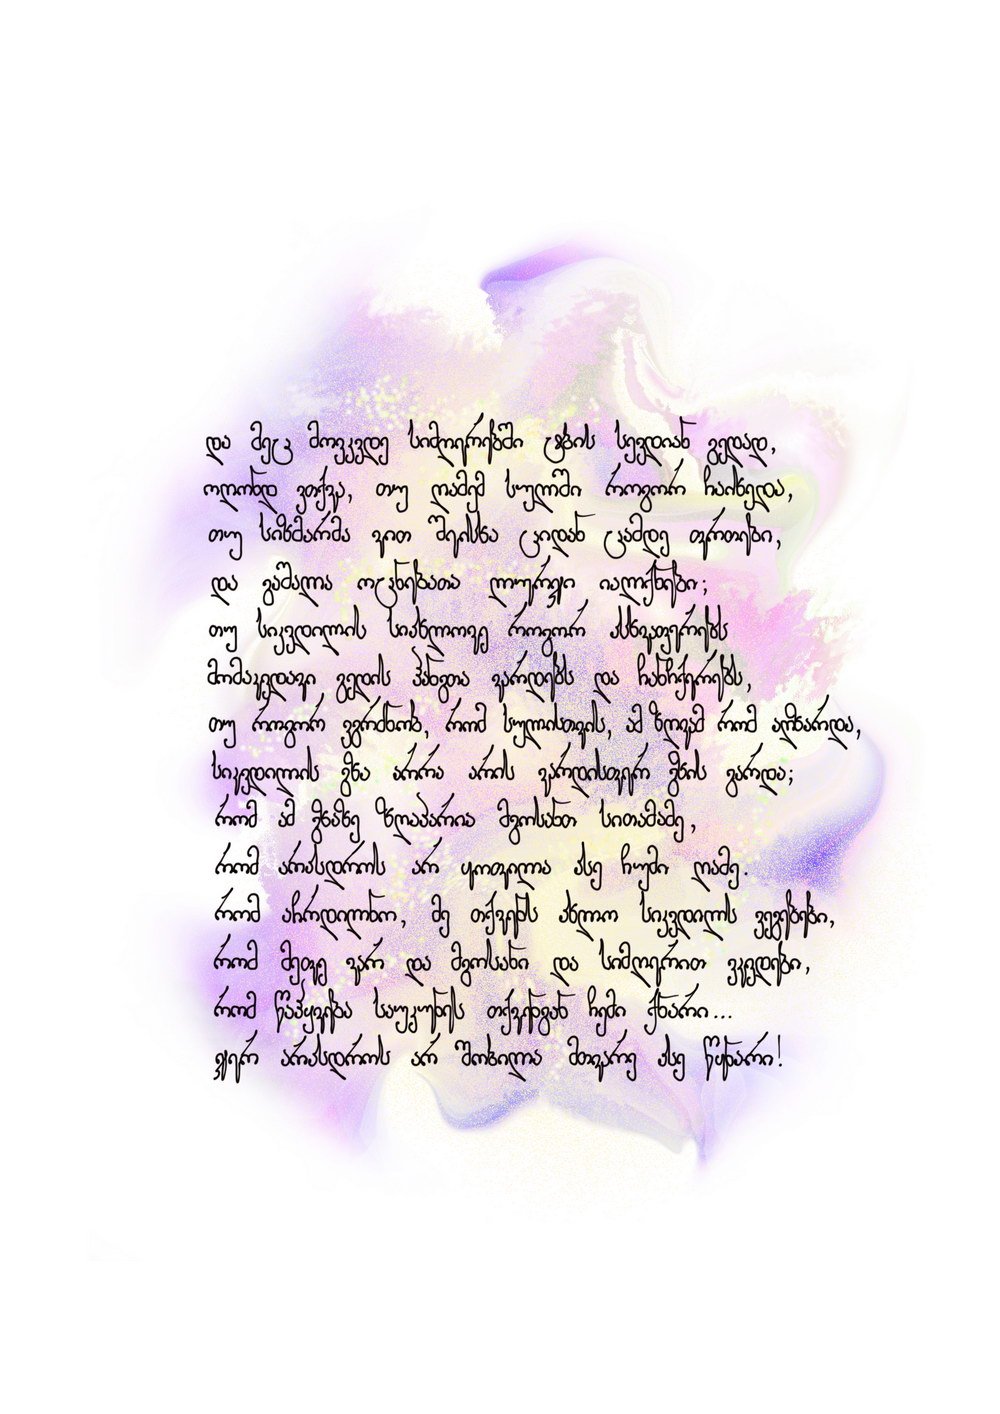 და მეც მოვკვდე სიმღერებში ტბის სევდიან გედად,
ოღონდ ვთქვა, თუ ღამემ სულში როგორ ჩაიხედა,
თუ სიზმარმა ვით შეისხა ციდან ცამდე ფრთები,
და გაშალა ოცნებათა ლურჯი იალქნები;
თუ სიკვდილის სიახლოვე როგორ ასხვაფერებს
მომაკვდავი გედის ჰანგთა ვარდებს და ჩანჩქერებს,
თუ როგორ ვგრძნობ, რომ სულისთვის, ამ ზღვამ რომ აღზარდა,
სიკვდილის გზა არრა არის ვარდისფერ გზის გარდა;
რომ ამ გზაზე ზღაპარია მგოსანთ სითამამე,
რომ არასდროს არ ყოფილა ასე ჩუმი ღამე.
რომ აჩრდილნო, მე თქვენს ახლო სიკვდილს ვეგებები,
რომ მეფე ვარ და მგოსანი და სიმღერით ვკვდები,
რომ წაჰყვება საუკუნეს თქვენგან ჩემი ქნარი...
ჯერ არასდროს არ შობილა მთვარე ასე წყნარი!